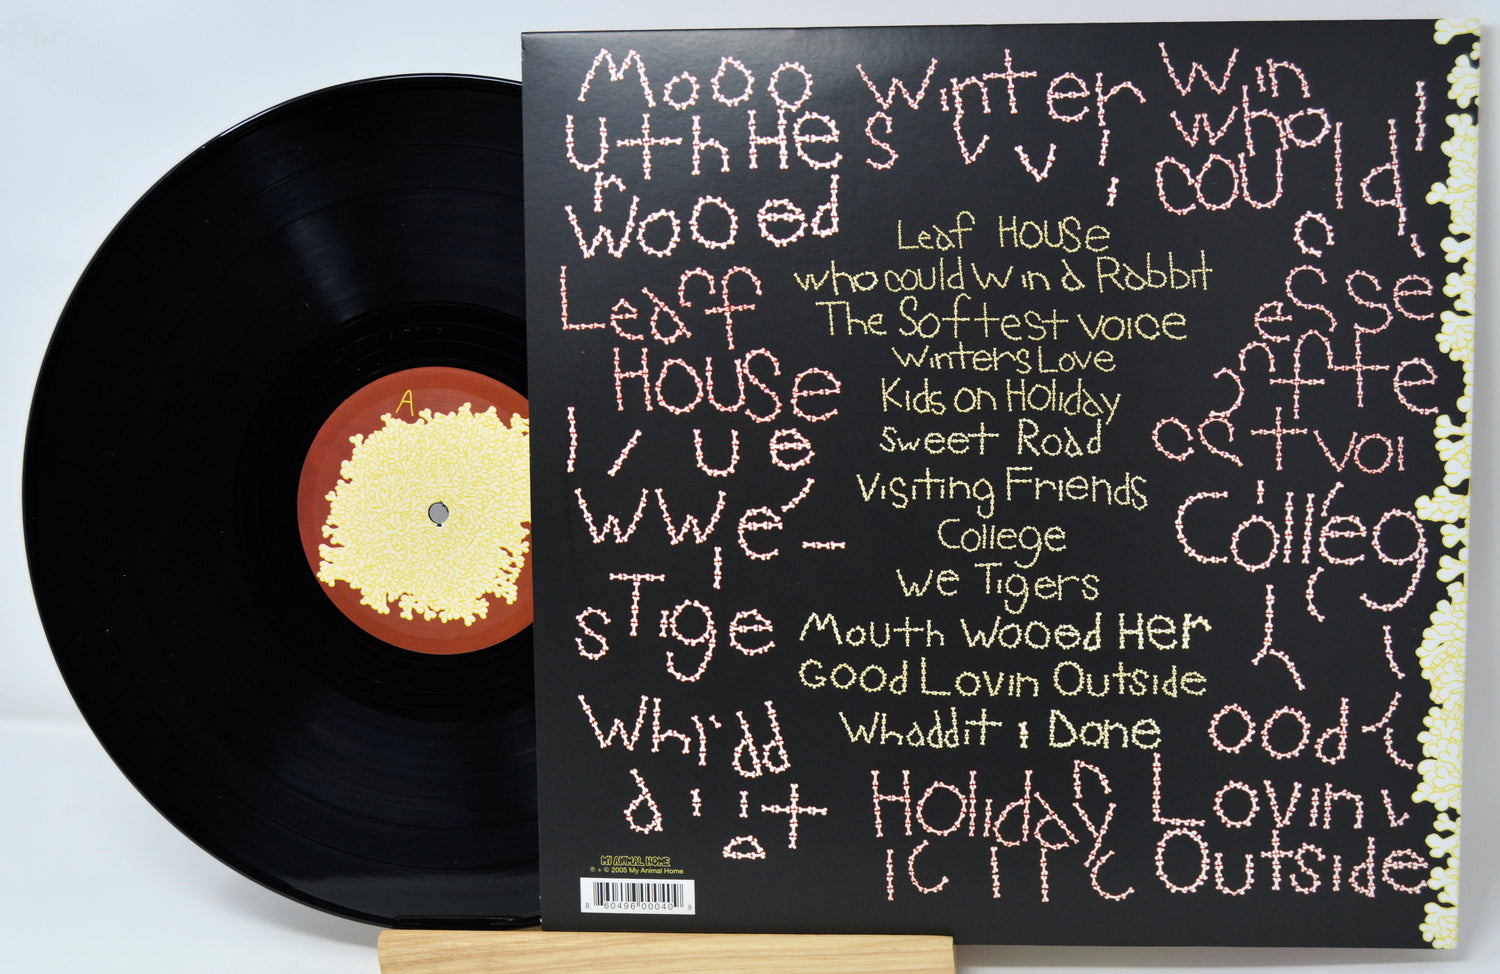 A
Mooo Winter Win
UthHe s v v i who
r , could
Wooed
Leaff
House
l / ue
WWe' -
sTige
Whi'dd
d i i t
e
Leaf House
Who could Win a Rabbit
The Softest Voice
Winters Love
Kids on Holiday
Sweet Road
Visiting Friends
College
We Tigers
Mouth Wooed Her
Good Lovin Outside
Whaddit I Done
esse
ffte
tvoi
Colleg
ood
Holiday
Lovin
Outside
MY ANIMAL HOME
℗ + © 2005 My Animal Home
8 60496 00040 9